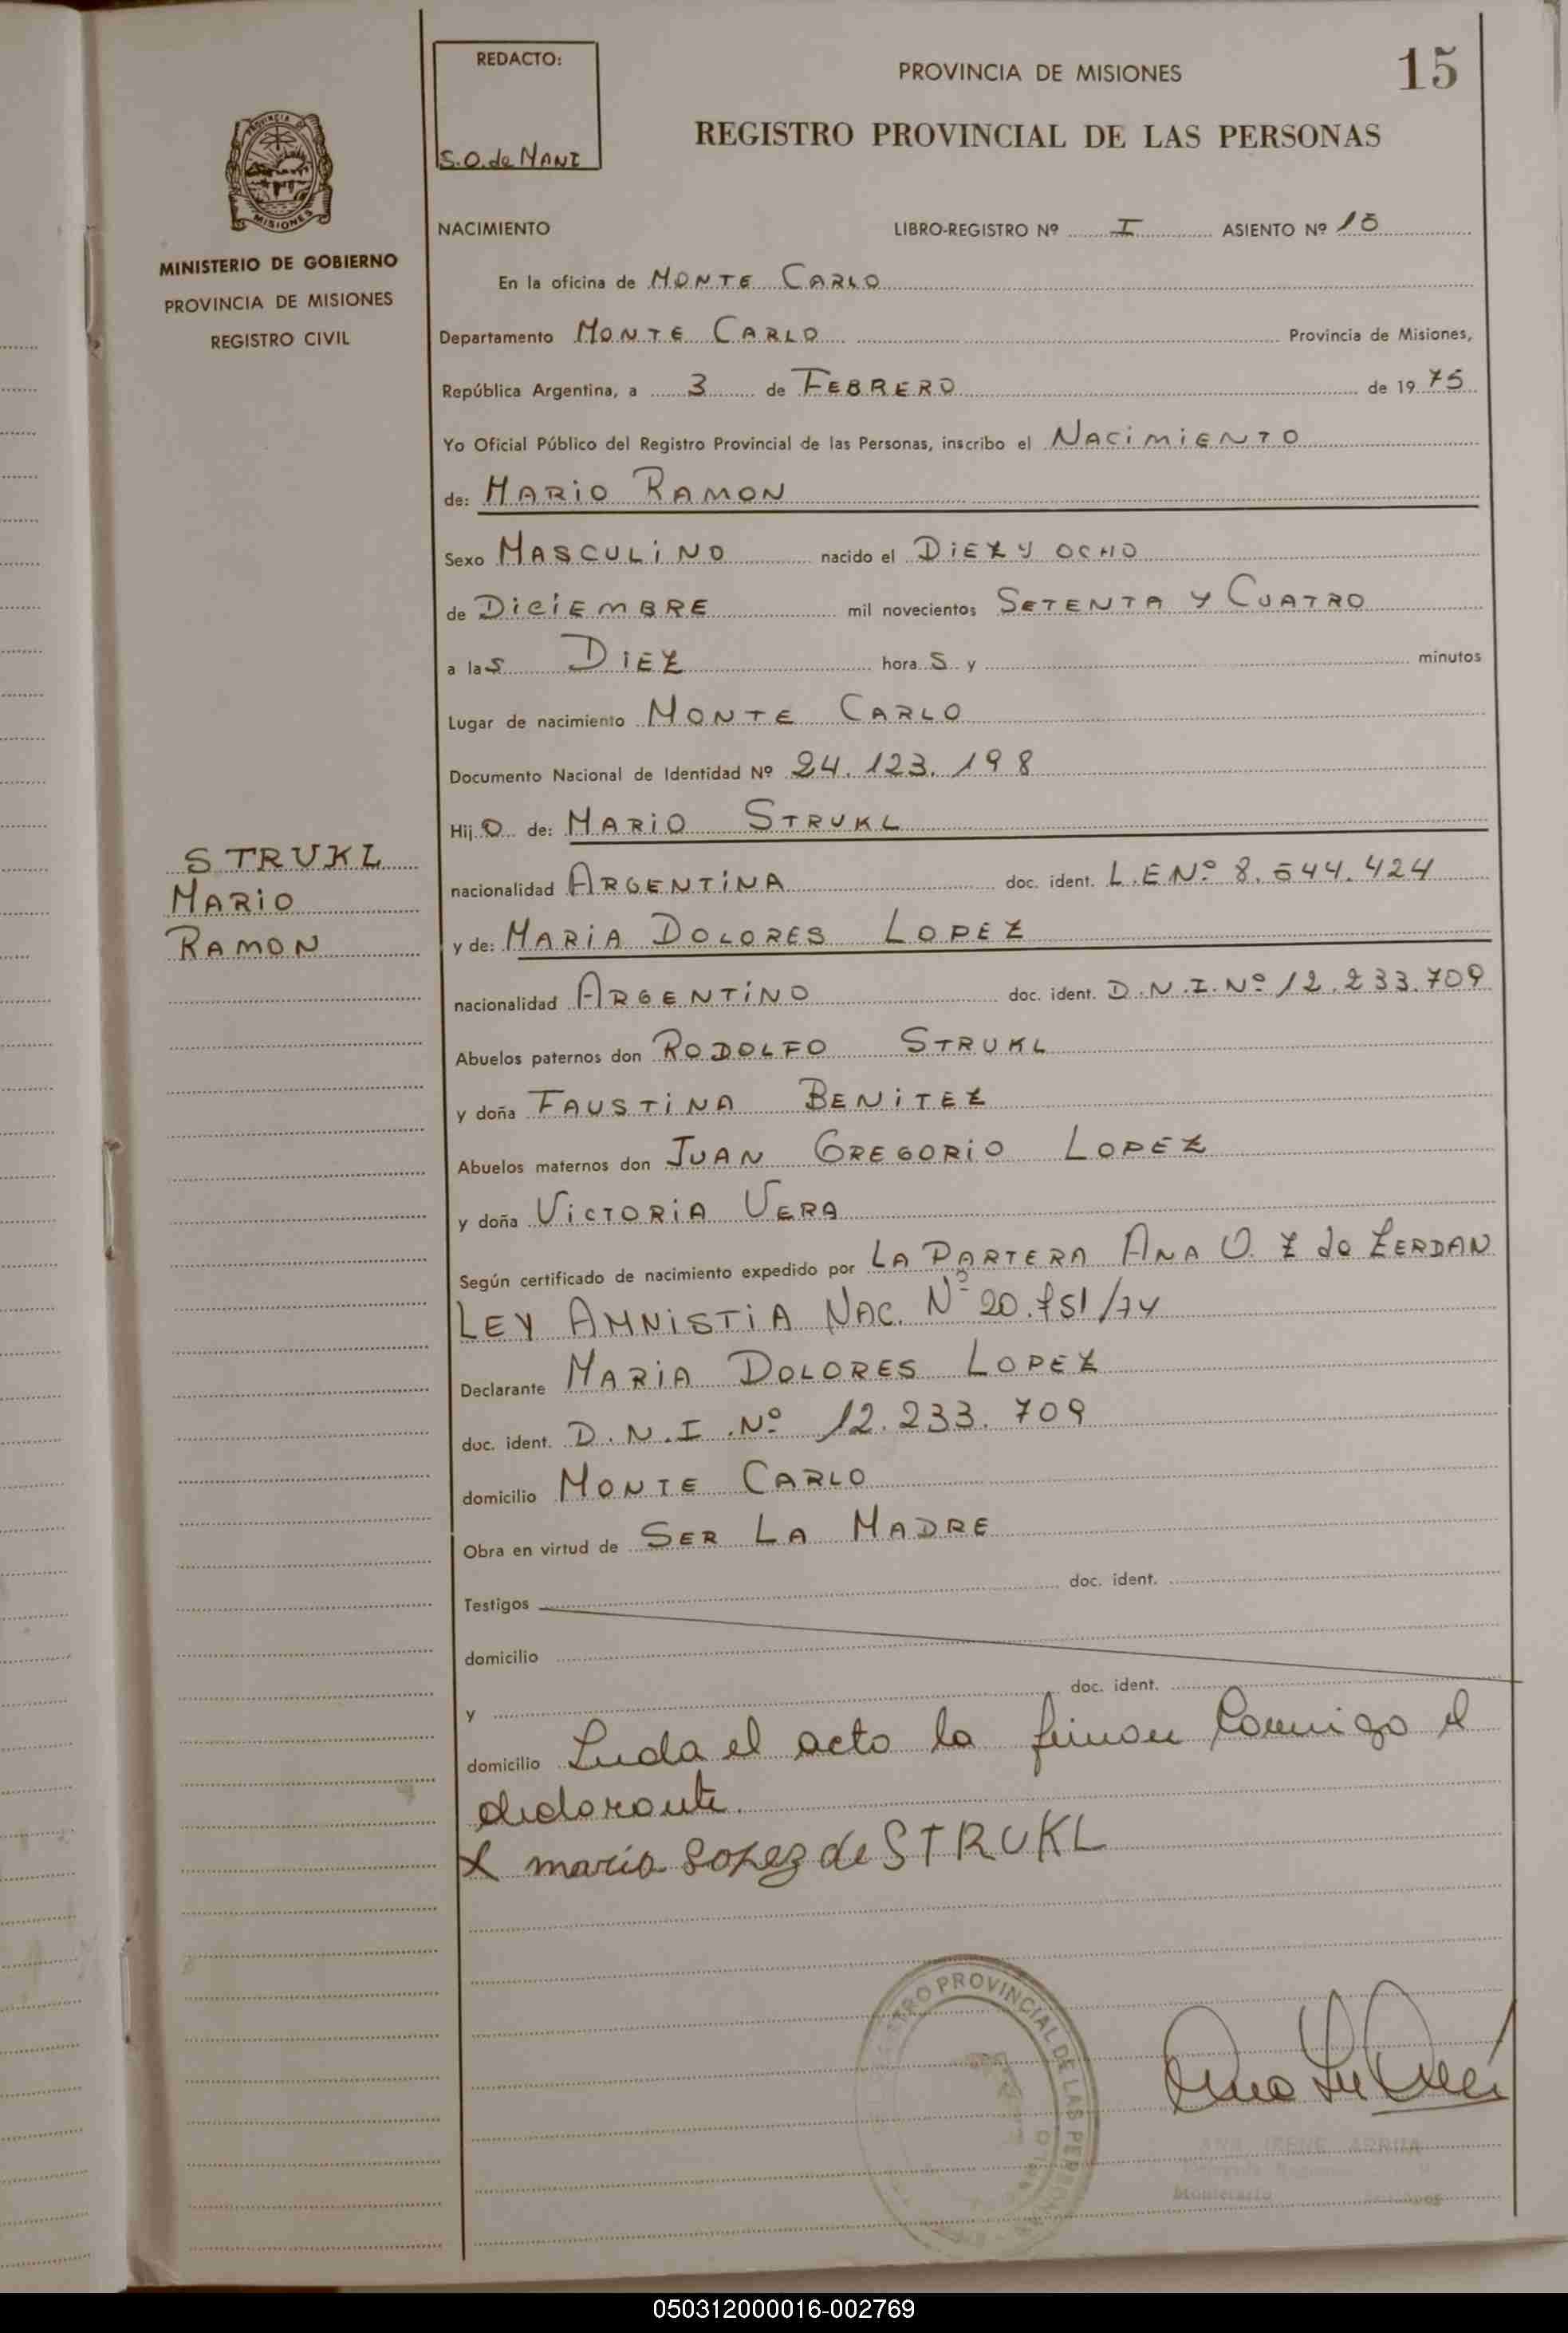 REDACTO:
S.O. de NANI
PROVINCIA DE MISIONES
15
REGISTRO PROVINCIAL DE LAS PERSONAS
PROVINCIA DE
MISIONES
MINISTERIO DE GOBIERNO
PROVINCIA DE MISIONES
REGISTRO CIVIL
NACIMIENTO LIBRO-REGISTRO Nº I ASIENTO Nº 15
En la oficina de MONTE CARLO
Departamento MONTE CARLO Provincia de Misiones,
República Argentina, a 3 de FEBRERO de 1975
Yo Oficial Público del Registro Provincial de las Personas, inscribo el NACIMIENTO
de: MARIO RAMON
Sexo MASCULINO nacido el DIEZ Y OCHO
de DICIEMBRE mil novecientos SETENTA Y CUATRO
a las DIEZ horas y minutos
Lugar de nacimiento MONTE CARLO
Documento Nacional de Identidad Nº 24.123.198
Hijo de: MARIO STRUKL
STRUKL
MARIO
RAMON
nacionalidad ARGENTINA doc. ident. L.E Nº 8.544.424
y de: MARIA DOLORES LOPEZ
nacionalidad ARGENTINO doc. ident. D.N.I. Nº 12.233.709
Abuelos paternos don RODOLFO STRUKL
y doña FAUSTINA BENITEZ
Abuelos maternos don JUAN GREGORIO LOPEZ
y doña VICTORIA VERA
Según certificado de nacimiento expedido por LA PARTERA ANA O. Z de ZERDAN
LEY AMNISTIA NAC. Nº 20.751/74
Declarante MARIA DOLORES LOPEZ
doc. ident. D.N.I. Nº 12.233.709
domicilio MONTE CARLO
Obra en virtud de SER LA MADRE
Testigos doc. ident.
domicilio
y doc. ident.
domicilio Leida el acta la firman conmigo el
declarante.
X maria Lopez de STRUKL
REGISTRO PROVINCIAL DE LAS PERSONAS
ANA IRENE ARRUA
Montecarlo Misiones
050312000016-002769